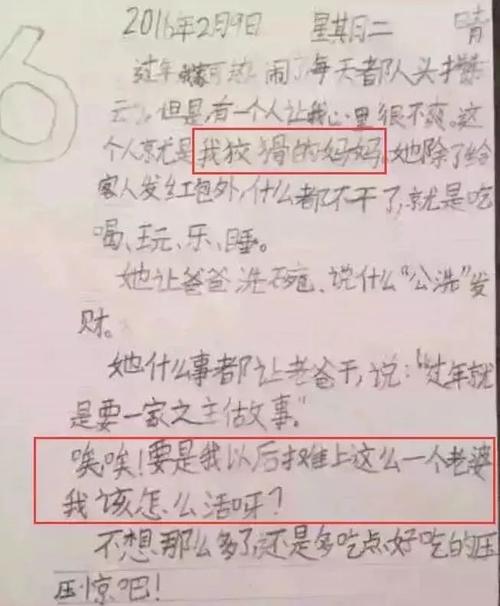 6
2016年2月9日 星其日二 晴
过年家可热闹了,每天都人头攒
云,但是,有一个人让我心里很不爽。这
个人就是我狡猾的妈妈,她除了给
客人发红包外,什么都不干了,就是吃
喝、玩、乐、睡。
她让爸爸洗碗,说什么“公洗”发
财。
她什么事都让老爸干,说:“过年就
是要一家之主做事。”
唉,唉!要是我以后摊上这么一个老婆
我该怎么活呀?
不想那么多了,还是多吃点好吃的压
压惊吧!